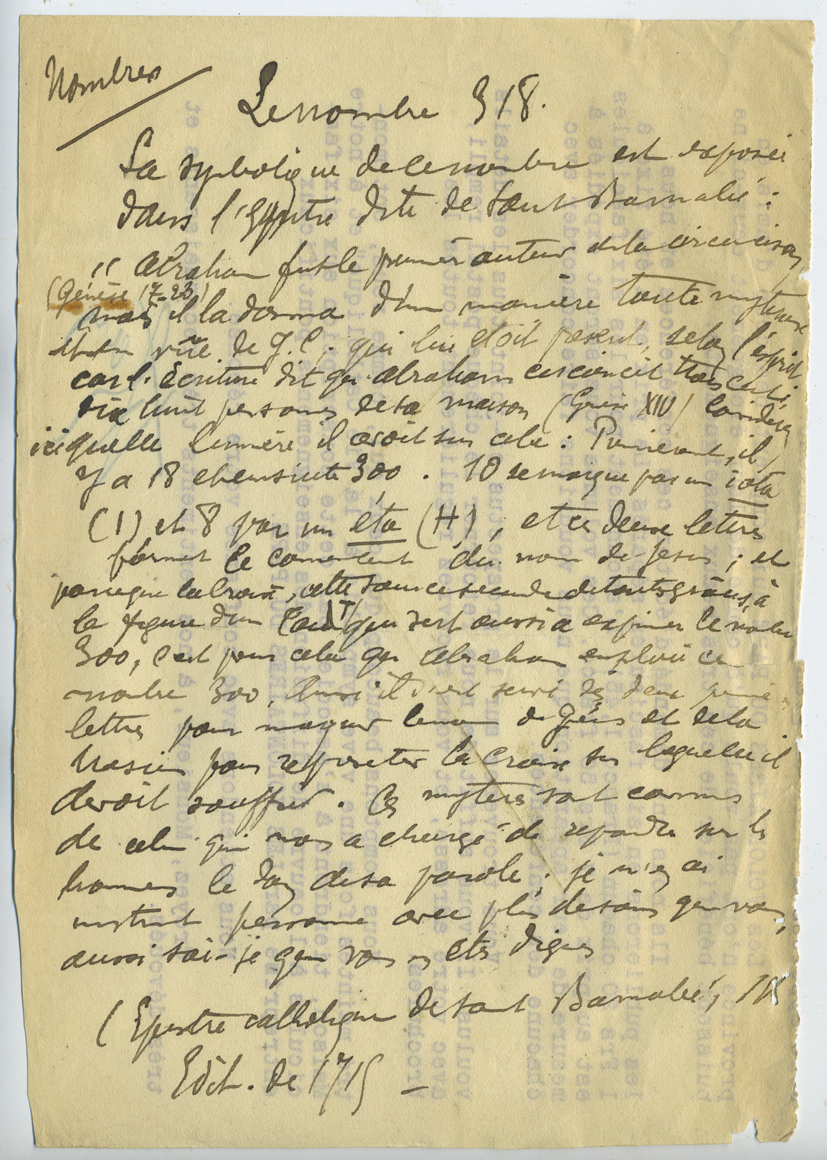 Nombres
Le nombre 318.
La symbolique de ce nombre est exposée
dans l'Epître dite de Saint Barnabé :
" Abraham fut le premier auteur de la circoncision
(Génèse 17-23)
mais il la donna d'une manière toute mystique
et en vüe de J.C. ; qui lui étoit présent, selon l'esprit
car l'Ecriture dit que Abraham circoncit trois cents
dix huit personnes de sa maison (Genèse XIV) Considérez
ici quelle lumière il avoit sur cela : Premièrement, il
y a 18 et ensuite 300. 10 se marque par un iota
(I) et 8 par un éta (H), et ces deux lettres
forment le commencement du nom de Jesus ; et
parceque la croix, cette source seconde de toutes grâces, a
la figure d'un Tau (T) qui sert aussi a exprimer le nombre
300, c'est pour cela que Abraham emploie ce
nombre 300. Ainsi il s'est servi des deux premières
lettres pour marquer le nom de Jésus et de la
pour représenter la Croix sur laquelle il
devoit souffrir. Ces mysteres sont connus
de celui qui nous a chargé de repandre sur les
hommes le don de sa parole ; je n'en ai
instruit personne avec plus de soins que vous,
aussi sai-je que vous en etes dignes
(Epistre catholique de saint Barnabé, IX
Edit. de 1715 —